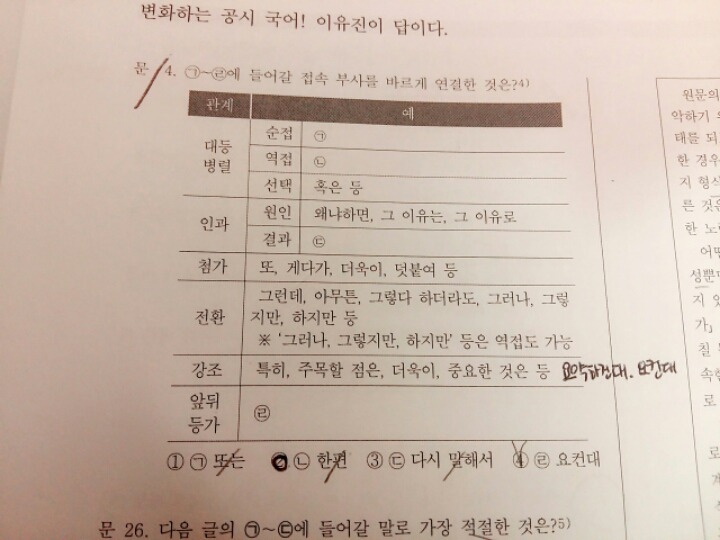 변화하는 공시 국어! 이유진이 답이다.
문 4. ㉠~㉣에 들어갈 접속 부사를 바르게 연결한 것은?4)
관계 예
대등 병렬 순접 ㉠
역접 ㉡
선택 혹은 등
인과 원인 왜냐하면, 그 이유는, 그 이유로
결과 ㉢
첨가 또, 게다가, 더욱이, 덧붙여 등
전환 그런데, 아무튼, 그렇다 하더라도, 그러나, 그렇
지만, 하지만 등
※ '그러나, 그렇지만, 하지만' 등은 역접도 가능
강조 특히, 주목할 점은, 더욱이, 중요한 것은 등 요약하건대. 요컨대
앞뒤 등가 ㉣
① ㉠ 또는 ② ㉡ 한편 ③ ㉢ 다시 말해서 ④ ㉣ 요컨대
문 26. 다음 글의 ㉠~㉢에 들어갈 말로 가장 적절한 것은?5)
원문의
악하기
태를 되
한 경우
지 형식
른 것은
한 노
어떤
성뿐
지 있
가」
칠
속
로
로